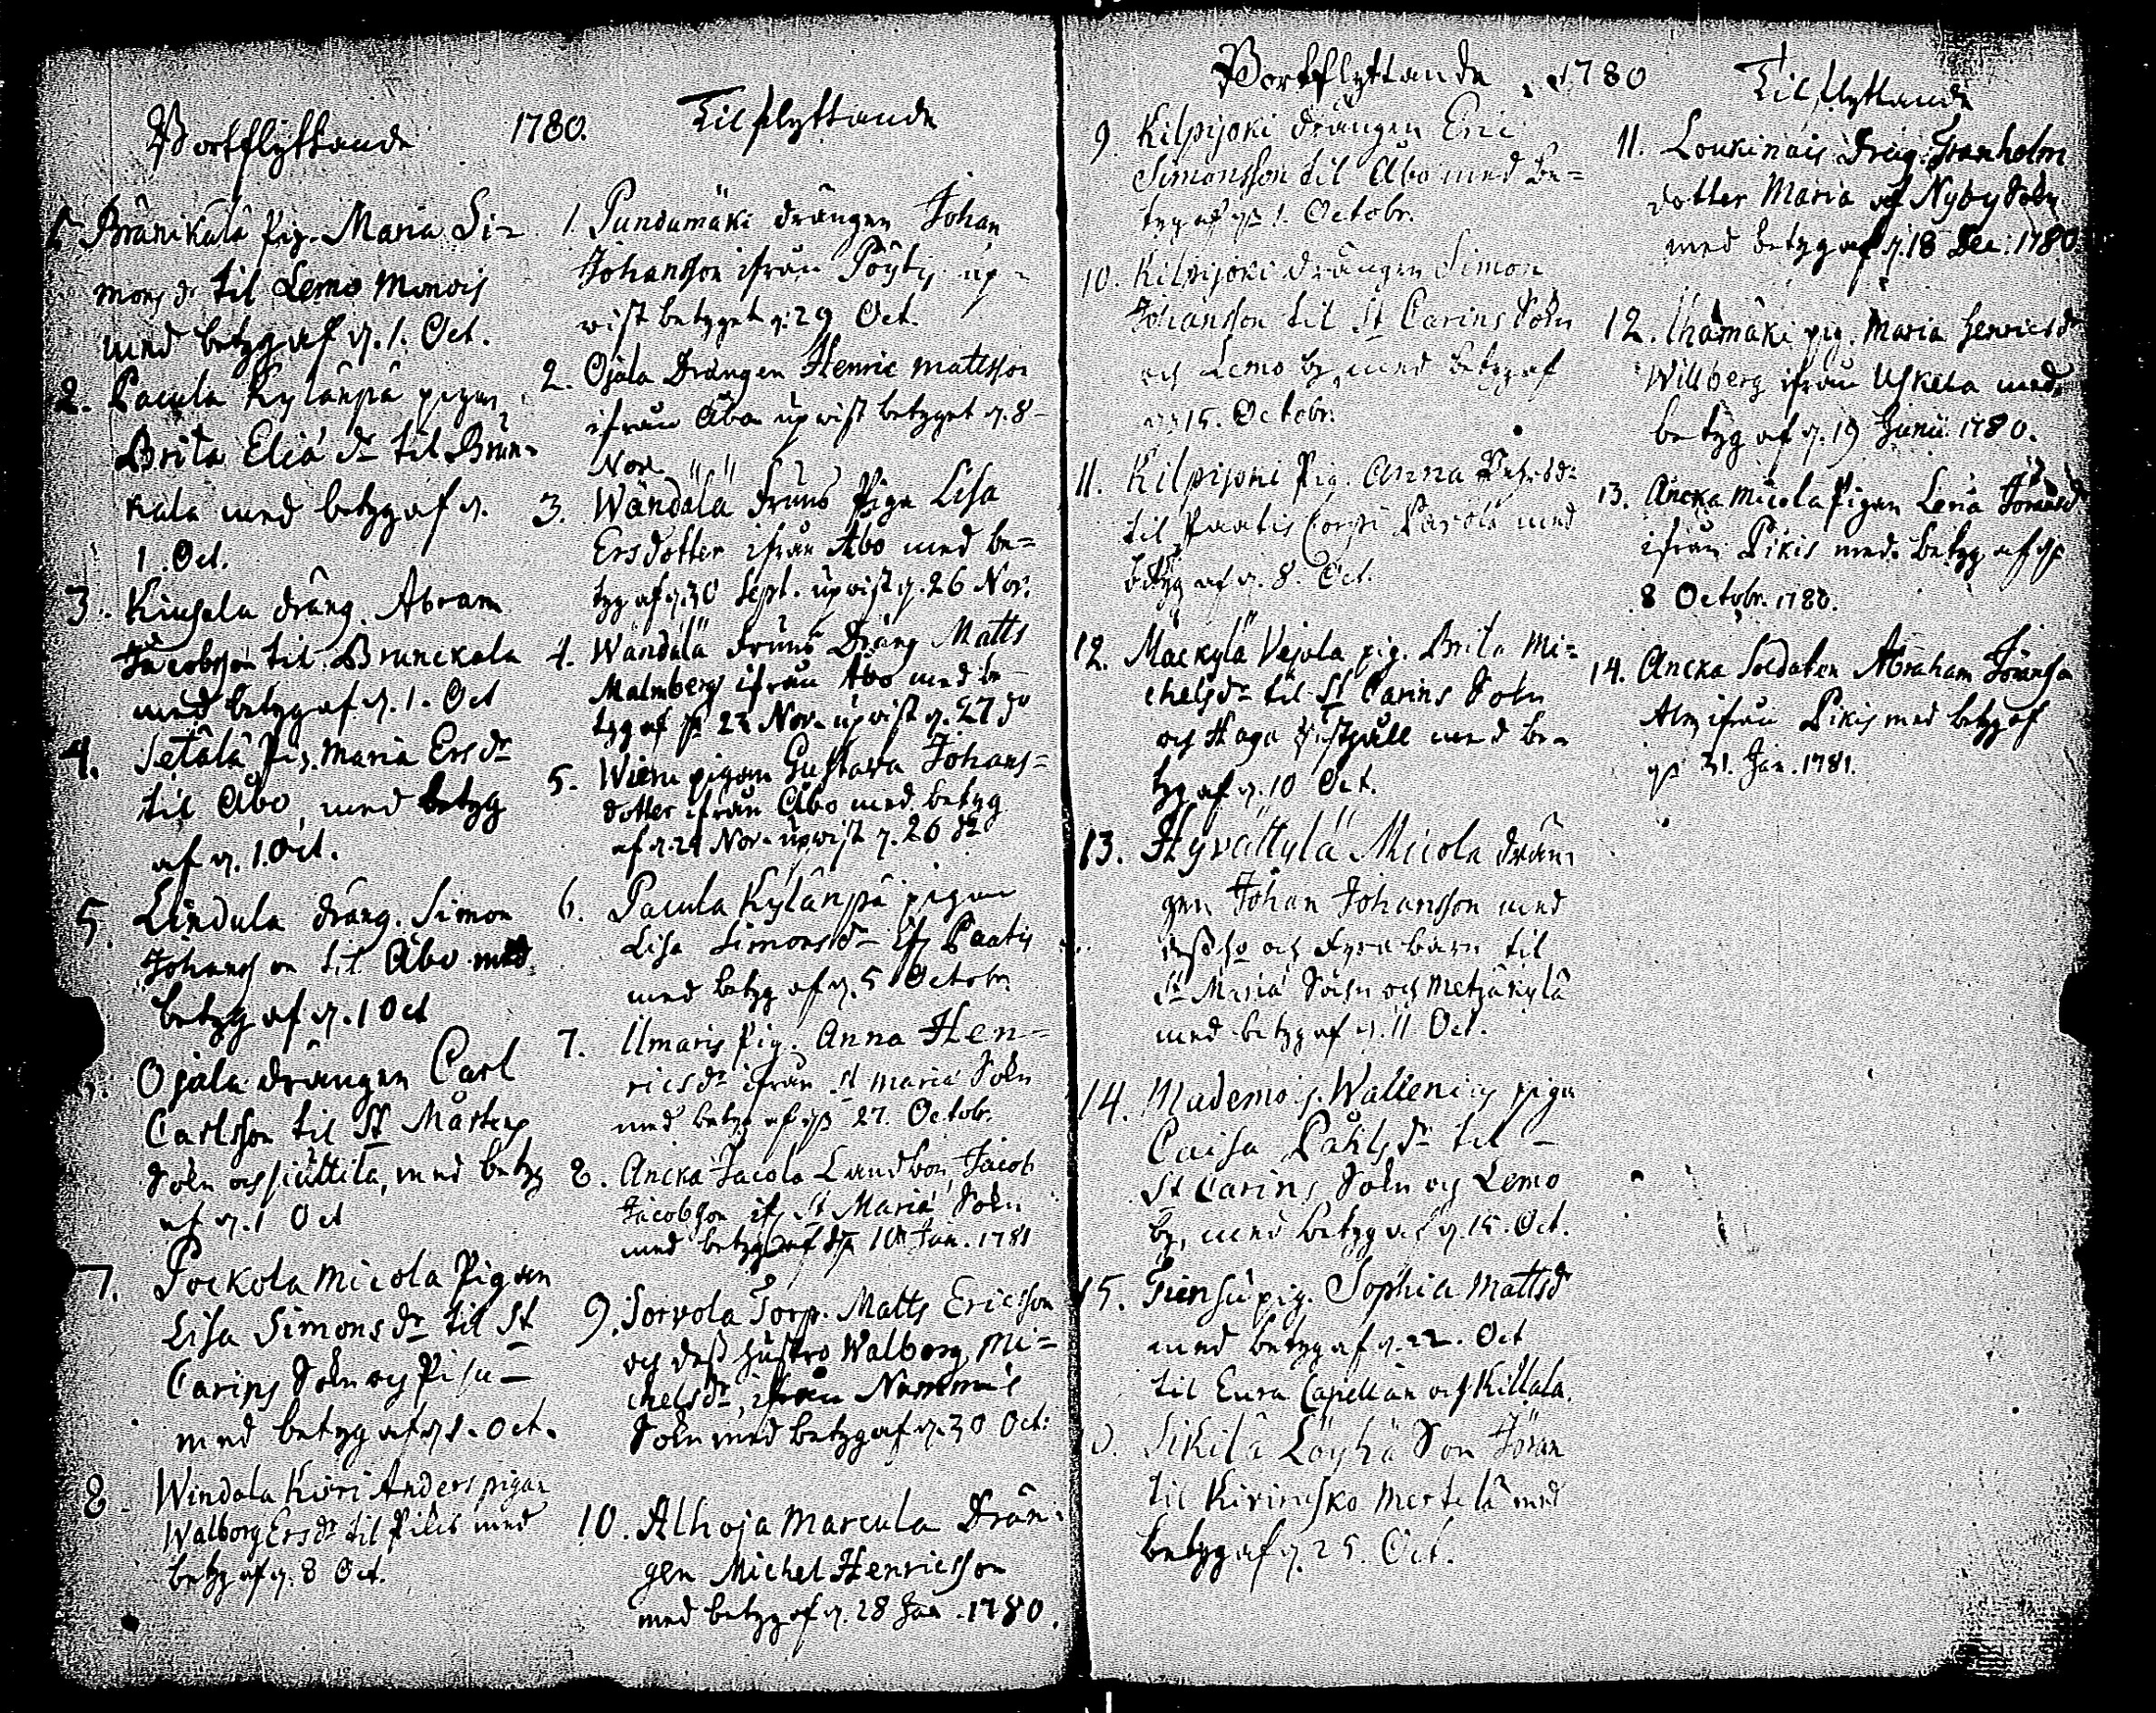 Bortflyttande 1780.
1. Bränikalä Pig. Maria Si-
mons dr til Lemo Monois
med betyg af d. 1. Oct.
2. Pacula Kylänpä pigan
Brita Eliä dr til Brun-
kala med betyg af d.
1. Oct.
3. dräng. Abram
Jacobsson til Brunckala
med betyg af d. 1. Oct
4. Setälä Pig. Maria Ers dr
til Åbo, med betyg
af d. 1. Oct.
5. Lindula dräng. Simon
Johansson til Åbo med
betyg af d. 1 Oct
Ojala drängen Carl
Carlsson til St Mårtens
Sokn och med betyg
af d. 1 Oct
7. Pockola Micola Pigan
Lisa Simons dr til St
Carins Sokn och
med betyg af d. 1. Oct.
8. Windala Kieri Anders pigan
Walborg Ers dr til Pikis med
betyg af d. 8 Oct.
Tilflyttande
1. Pundamäki drängen Johan
Johansson ifrån Pöytis up-
wist betyget d. 29 Oct.
2. Ojala Drängen Henric Mattsson
ifrån Åbo upwist betyget d. 8
Nov.
3. Wändälä Fruns Piga Lisa
Ersdotter ifrån Åbo med be=
tyg af d. 30 Sept. upwist d. 26 Nov.
4. Wändälä Fruns Dräng Matts
Malmberg ifrån Åbo med be-
tyg af d. 23 Nov. upwist d. 27 do
5. pigan Gustava Johans=
dotter ifrån Åbo med betyg
af d. 24 Nov. upwist d. 26 do
6. Pacula Kylänpä pigan
Lisa Simons dr ifr. Paatis
med betyg af d. 5 Octobr.
7. Ilmaris Pig. Anna Hen=
rics dr ifrån St Mariä Sokn
med betyg af d. 27. Octobr.
8. Ancka Jacola Landbon, Jacob
Jacobsson ifr. St Mariä Sokn
med betyg af d. Jan. 1781
9. Sorvola Torp. Matts Ericsson
och dess hustro Walborg Mi=
chels dr, ifrån Nummis
Sokn med betyg af d. 30 Oct:
10. Alhoja Marcula Drän-
gen Michel Henricsson
med betyg af d. 28 Jan. 1780.
Bortflyttande 1780
9. Kilpijoki drängen Eric
Simonsson til Åbo med be=
tyg af d. 1. Octobr.
10. Kilpijoki drängen Simon
Johansson til St Carins Sokn
och Lemo by, med betyg af
d. 15. Octobr.
11. Kilpijoki Pig. Anna
til Paatis Corpi med
betyg af d. 8. Oct.
12. Mäckylä Vejola pig. Brita Mi=
chels dr til St Carins Sokn
och Haga med be-
tyg af d. 10 Oct.
13. Hyvättylä Micola drän-
gen Johan Johansson med
dess ho och fyra barn til
St Mariä Sokn och Metzäkylä
med betyg af d. 11 Oct.
14. Mademois. Wallenius piga
Caisa til
St Carins Sokn och Lemo
by, med betyg af d. 15. Oct.
15. pig. Sophia Matts dr
med betyg af d. 22. Oct
til Eura Capellan och Killala.
Sikilä Löyhä Son Jöran
til Mertelä med
betyg af d. 25. Oct.
Tilflyttande
11. Loukinais Dräg. Granholm
dotter Maria af Nyby Sokn
med betyg af d. 18 Dec: 1780
12. Ihämäki pig. Maria Henrics dr
Willberg ifrån Uskela med
betyg af d. 19 Junii 1780.
13. Ancka Micola Pigan Lena
ifrån Pikis med betyg af d.
8 Octobr. 1780.
14. Ancka Soldaten Abraham Jöransson
Alm ifrån Pikis med betyg af
d. 31. Jan. 1781.